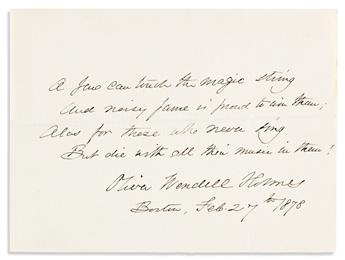 A few can touch the magic string
And noisy fame is proud to win them;
Alas for those who never sing
But die with all their music in them!
Oliver Wendell Holmes
Boston, Feb. 27th 1878